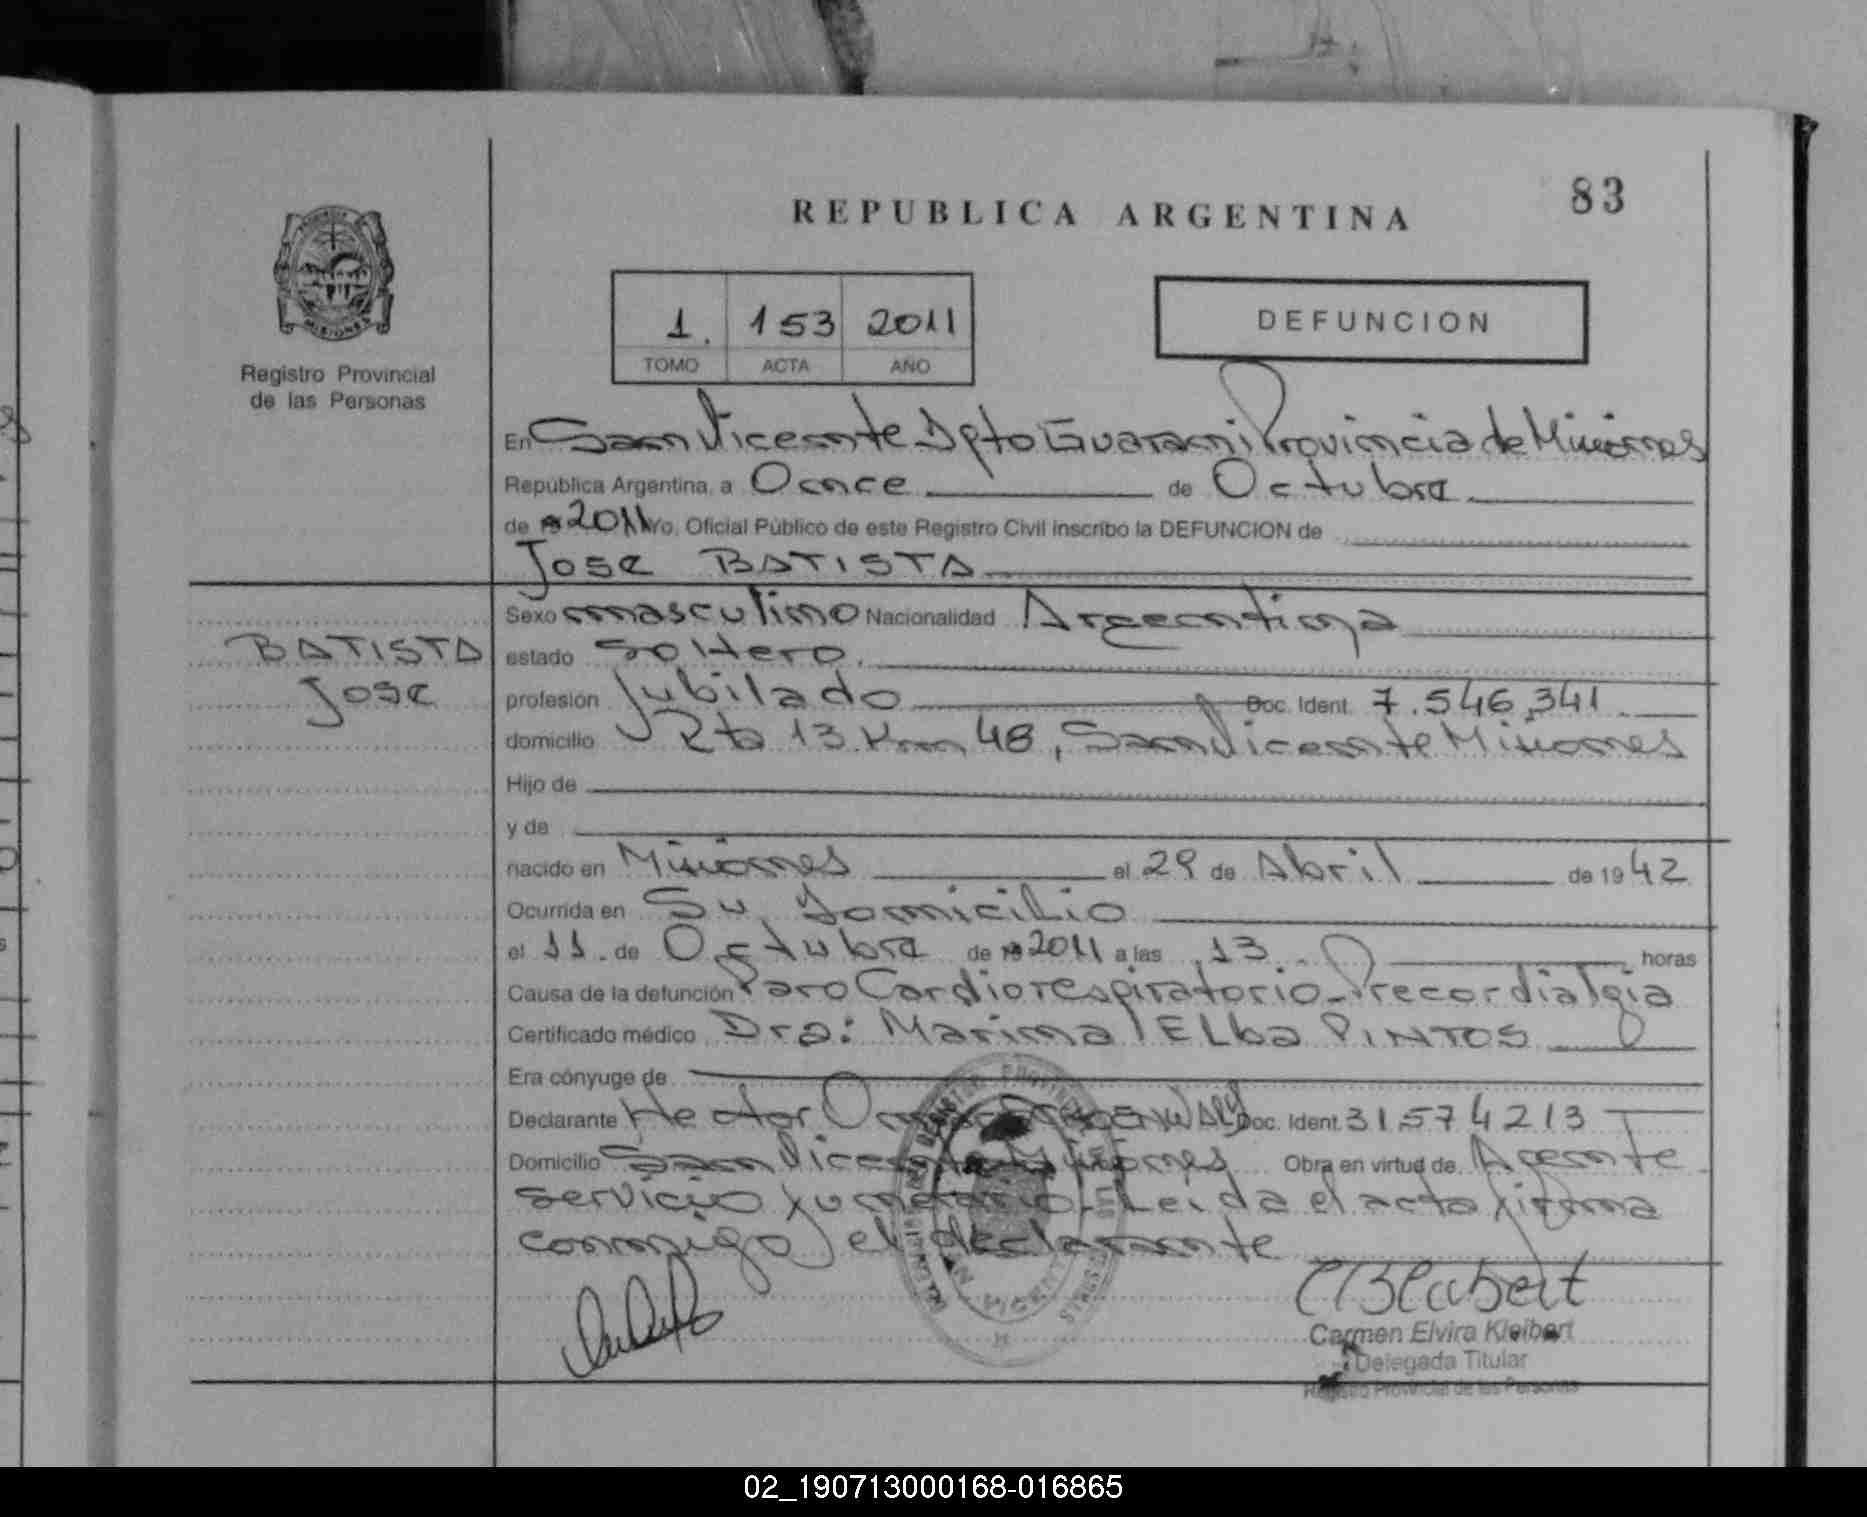 83
REPUBLICA ARGENTINA
MISIONES
Registro Provincial
de las Personas
1. 153 2011
TOMO ACTA AÑO
DEFUNCION
En San Vicente Dpto Guarani Provincia de Misiones
República Argentina, a Once de Octubre
de 2011 Yo, Oficial Público de este Registro Civil inscribo la DEFUNCION de
Jose BATISTA
BATISTA
Jose
Sexo masculino Nacionalidad Argentina
estado Soltero.
profesión Jubilado Doc. Ident. 7.546.341
domicilio Rta 13 Km 48, San Vicente Misiones
Hijo de
y de
nacido en Misiones el 29 de Abril de 1942
Ocurrida en Su Domicilio
el 11. de Octubre de 2011 a las 13 horas
Causa de la defunción Paro Cardiorespiratorio-Precordialgia
Certificado médico Dra: Marina ELba PINTOS
Era cónyuge de
Declarante Hector Doc. Ident. 31574213
Domicilio San Vicente Misiones Obra en virtud de Agente
servicio funerario. Leida el acta firma
conmigo el declarante
Carmen Elvira Kleibert
Delegada Titular
Registro Provincial de las Personas
02_190713000168-016865